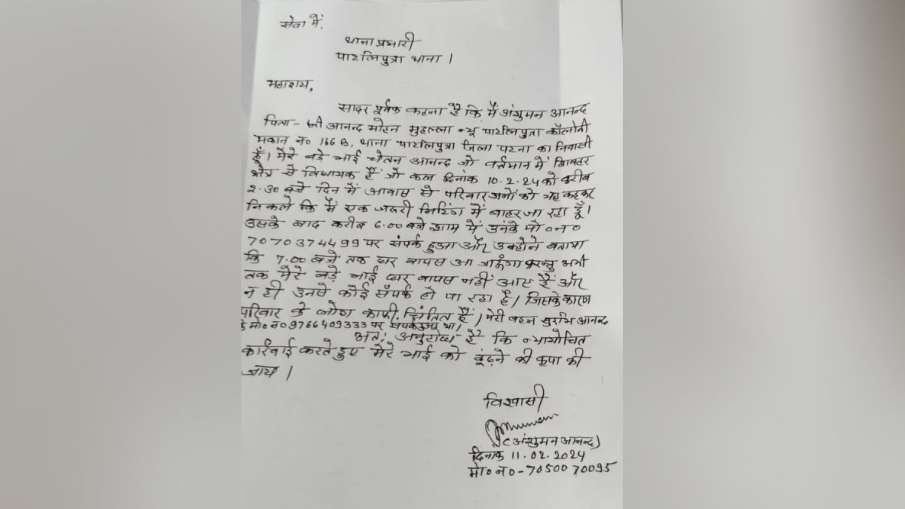 सेवा में,
थाना प्रभारी
पाटलिपुत्रा थाना।
महाशय,
सादर पूर्वक कहना है कि मैं अंशुमन आनन्द
पिता - श्री आनन्द मोहन मुहल्ला न्यू पाटलिपुत्रा कॉलोनी
मकान न० 166 B, थाना पाटलिपुत्रा जिला पटना का निवासी
हूँ। मेरे बड़े भाई चेतन आनन्द जो वर्तमान में शिवहर
क्षेत्र से विधायक हैं जो कल दिनांक 10.2.24 को करीब
2.30 बजे दिन में आवास से परिवार जनों को यह कहकर
निकले कि मैं एक जरुरी मिटिंग में बाहर जा रहा हूँ।
उसके बाद करीब 6.00 बजे शाम में उनके मो०न०
7070374499 पर संपर्क हुआ और उन्होंने बताया
कि 7.00 बजे तक घर वापस आ जाऊंगा परन्तु अभी
तक मेरे बड़े भाई घर वापस नहीं आए हैं और
न ही उनसे कोई संपर्क हो पा रहा है। जिसके कारण
परिवार के लोग काफी चिंतित हैं। मेरी बहन सुरभि आनन्द
के मो० न० 9766409333 पर संपर्क हुआ था।
अतः अनुरोध है कि न्यायोचित
कार्रवाई करते हुए मेरे भाई को ढूंढ़ने की कृपा की
जाय।
विश्वासी
(अंशुमन आनन्द)
दिनांक 11.02.2024
मो०न० - 7050070095